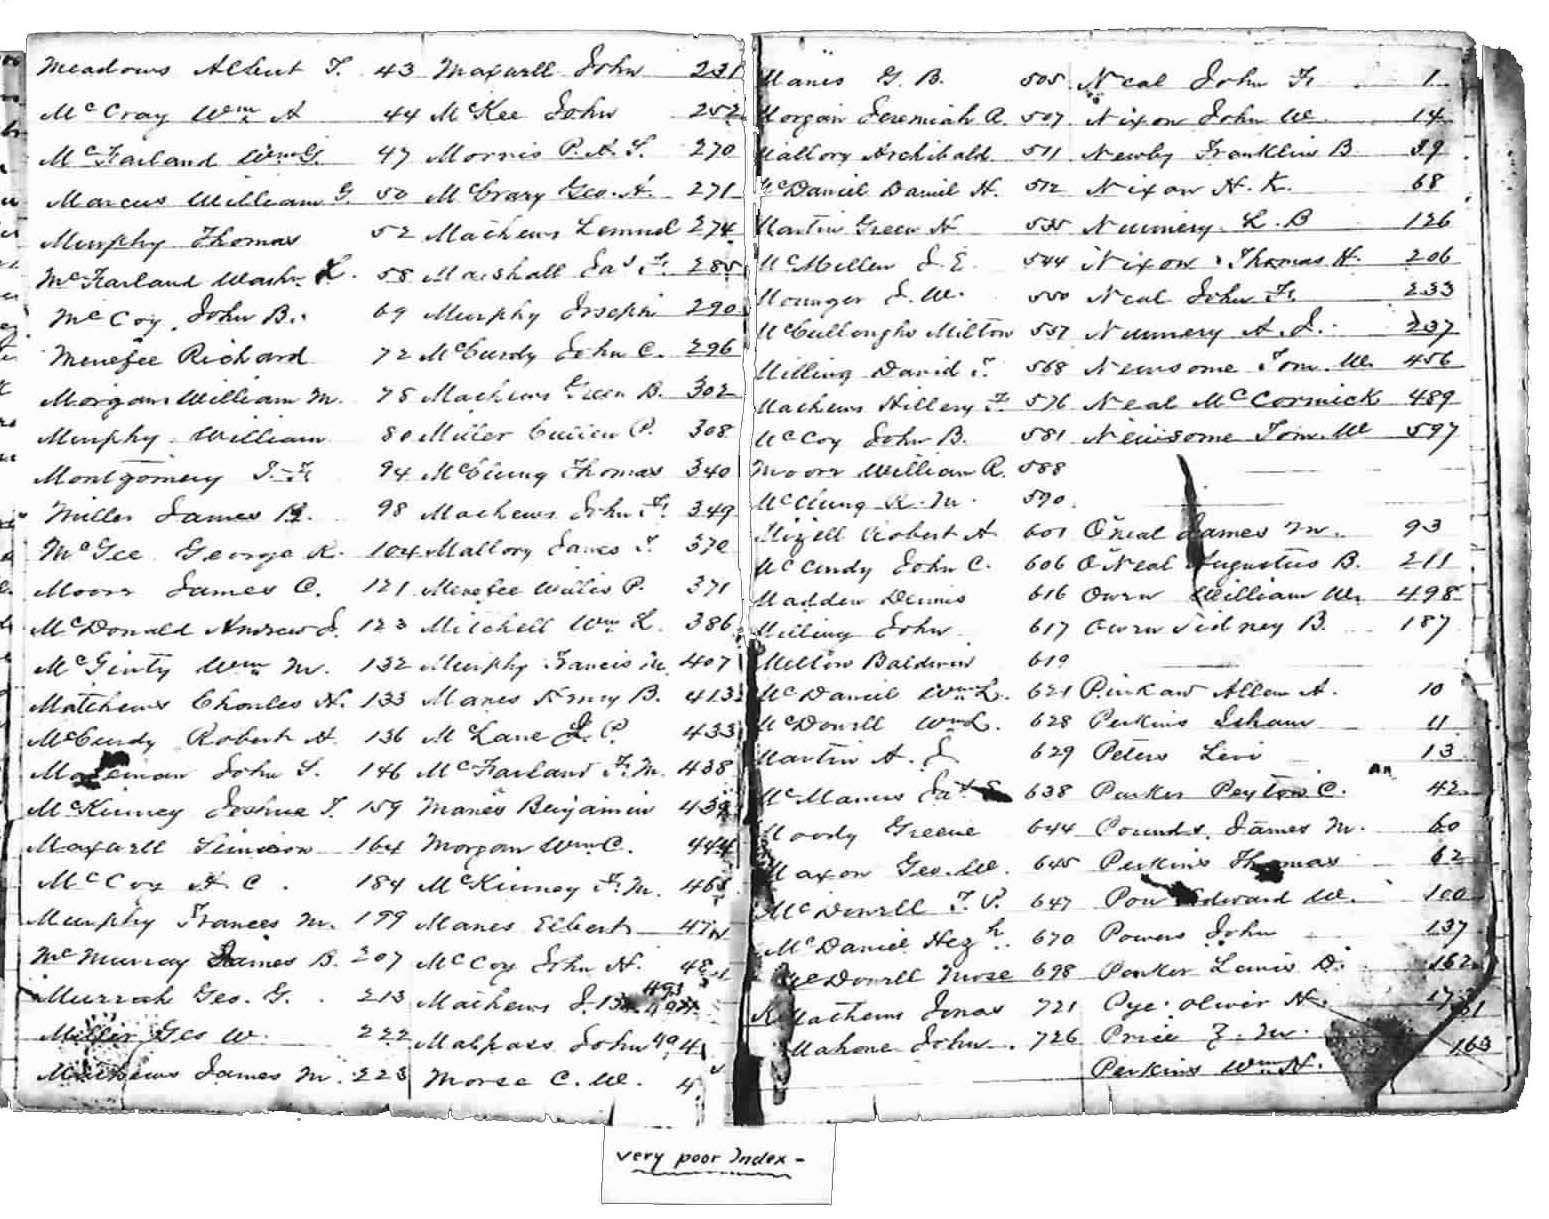 Meadows Albert T. 43
McCray Wm A 44
McFarland Wm G. 47
Marcus William G. 50
Murphy Thomas 52
McFarland Washn. L. 58
McCoy John B. 69
Menefee Richard 72
Morgan William M. 78
Murphy William 80
Montgomery J. F. 94
Miller James 98
McGee George R. 104
Moore James C. 121
McDonald Andrew J. 123
McGinty Wm M. 132
Matthews Charles N. 133
McCurdy Robert A. 136
John S. 146
McKinney Joshua T. 159
Maxwell Simeon 164
McCoy A. C. 184
Murphy Frances M. 199
McMurray James B. 207
Murrah Geo. G. 213
Miller Geo W. 222
Mathews James M. 223
Maxwell John 231
McKee John 252
Morris P. A. S. 270
McCrary Geo. A. 271
Mathews Lemuel 274
Marshall Jas F. 285
Murphy Joseph 290
McCurdy John C. 296
Mathews Green B. 302
Miller P. 308
McClung Thomas 340
Mathews John F. 349
Mallory James T. 370
Menefee Willis P. 371
Mitchell Wm L. 386
Murphy Francis M. 407
Manes Henry B. 413
McLane J. P. 433
McFarland F. M. 438
Manes Benjamin 439
Morgan Wm C. 444
McKinney F. M. 468
Manes Elbert
McCoy John N.
Mathews J. 493
Malpass John 494
Morse C. W.
Manes G. B. 505
Morgan Jeremiah A. 507
Mallory Archibald 511
McDaniel Daniel H. 512
Martin Green H 535
McMillen J. E. 544
Mounger J. W. 550
McCulloughs Milton 557
Milling David T. 568
Mathews Hillery F. 576
McCoy John B. 581
Moore William R. 588
McClung R. M. 590
Mizell Robert A 601
McCurdy John C. 606
Madden Dennis 616
Milling John 617
Melton Baldwin 619
McDaniel Wm L. 621
McDowell Wm L. 628
Martin A. J. 629
McManus 638
Moody Greene 644
Maxon Geo. W. 645
McDowell T. P. 647
McDaniel Hez h. 670
McDowell Mose 698
Mathews Jonas 721
Mahone John 726
Neal John F. 1
Nixon John W. 14
Newby Franklin B 39
Nixon H. K. 68
Nunnery L. B 126
Nixon Thomas H. 206
Neal John F. 233
Nunnery A. J. 237
Newsome Tom. W. 456
Neal McCormick 489
Newsome Tom. W 597
O'neal James M. 93
O'Neal Augustus B. 211
Owen William W. 498
Owen Sidney B. 187
Allen A. 10
Perkins Isham 11
Peters Levi 13
Parker Peyton C. 42
Pounds James M. 60
Perkins Thomas 62
Pou Edward W. 100
Powers John 137
Parker Lewis D. 162
Pye Oliver N.
Price Z. M.
Perkins Wm H. 163
very poor Index -